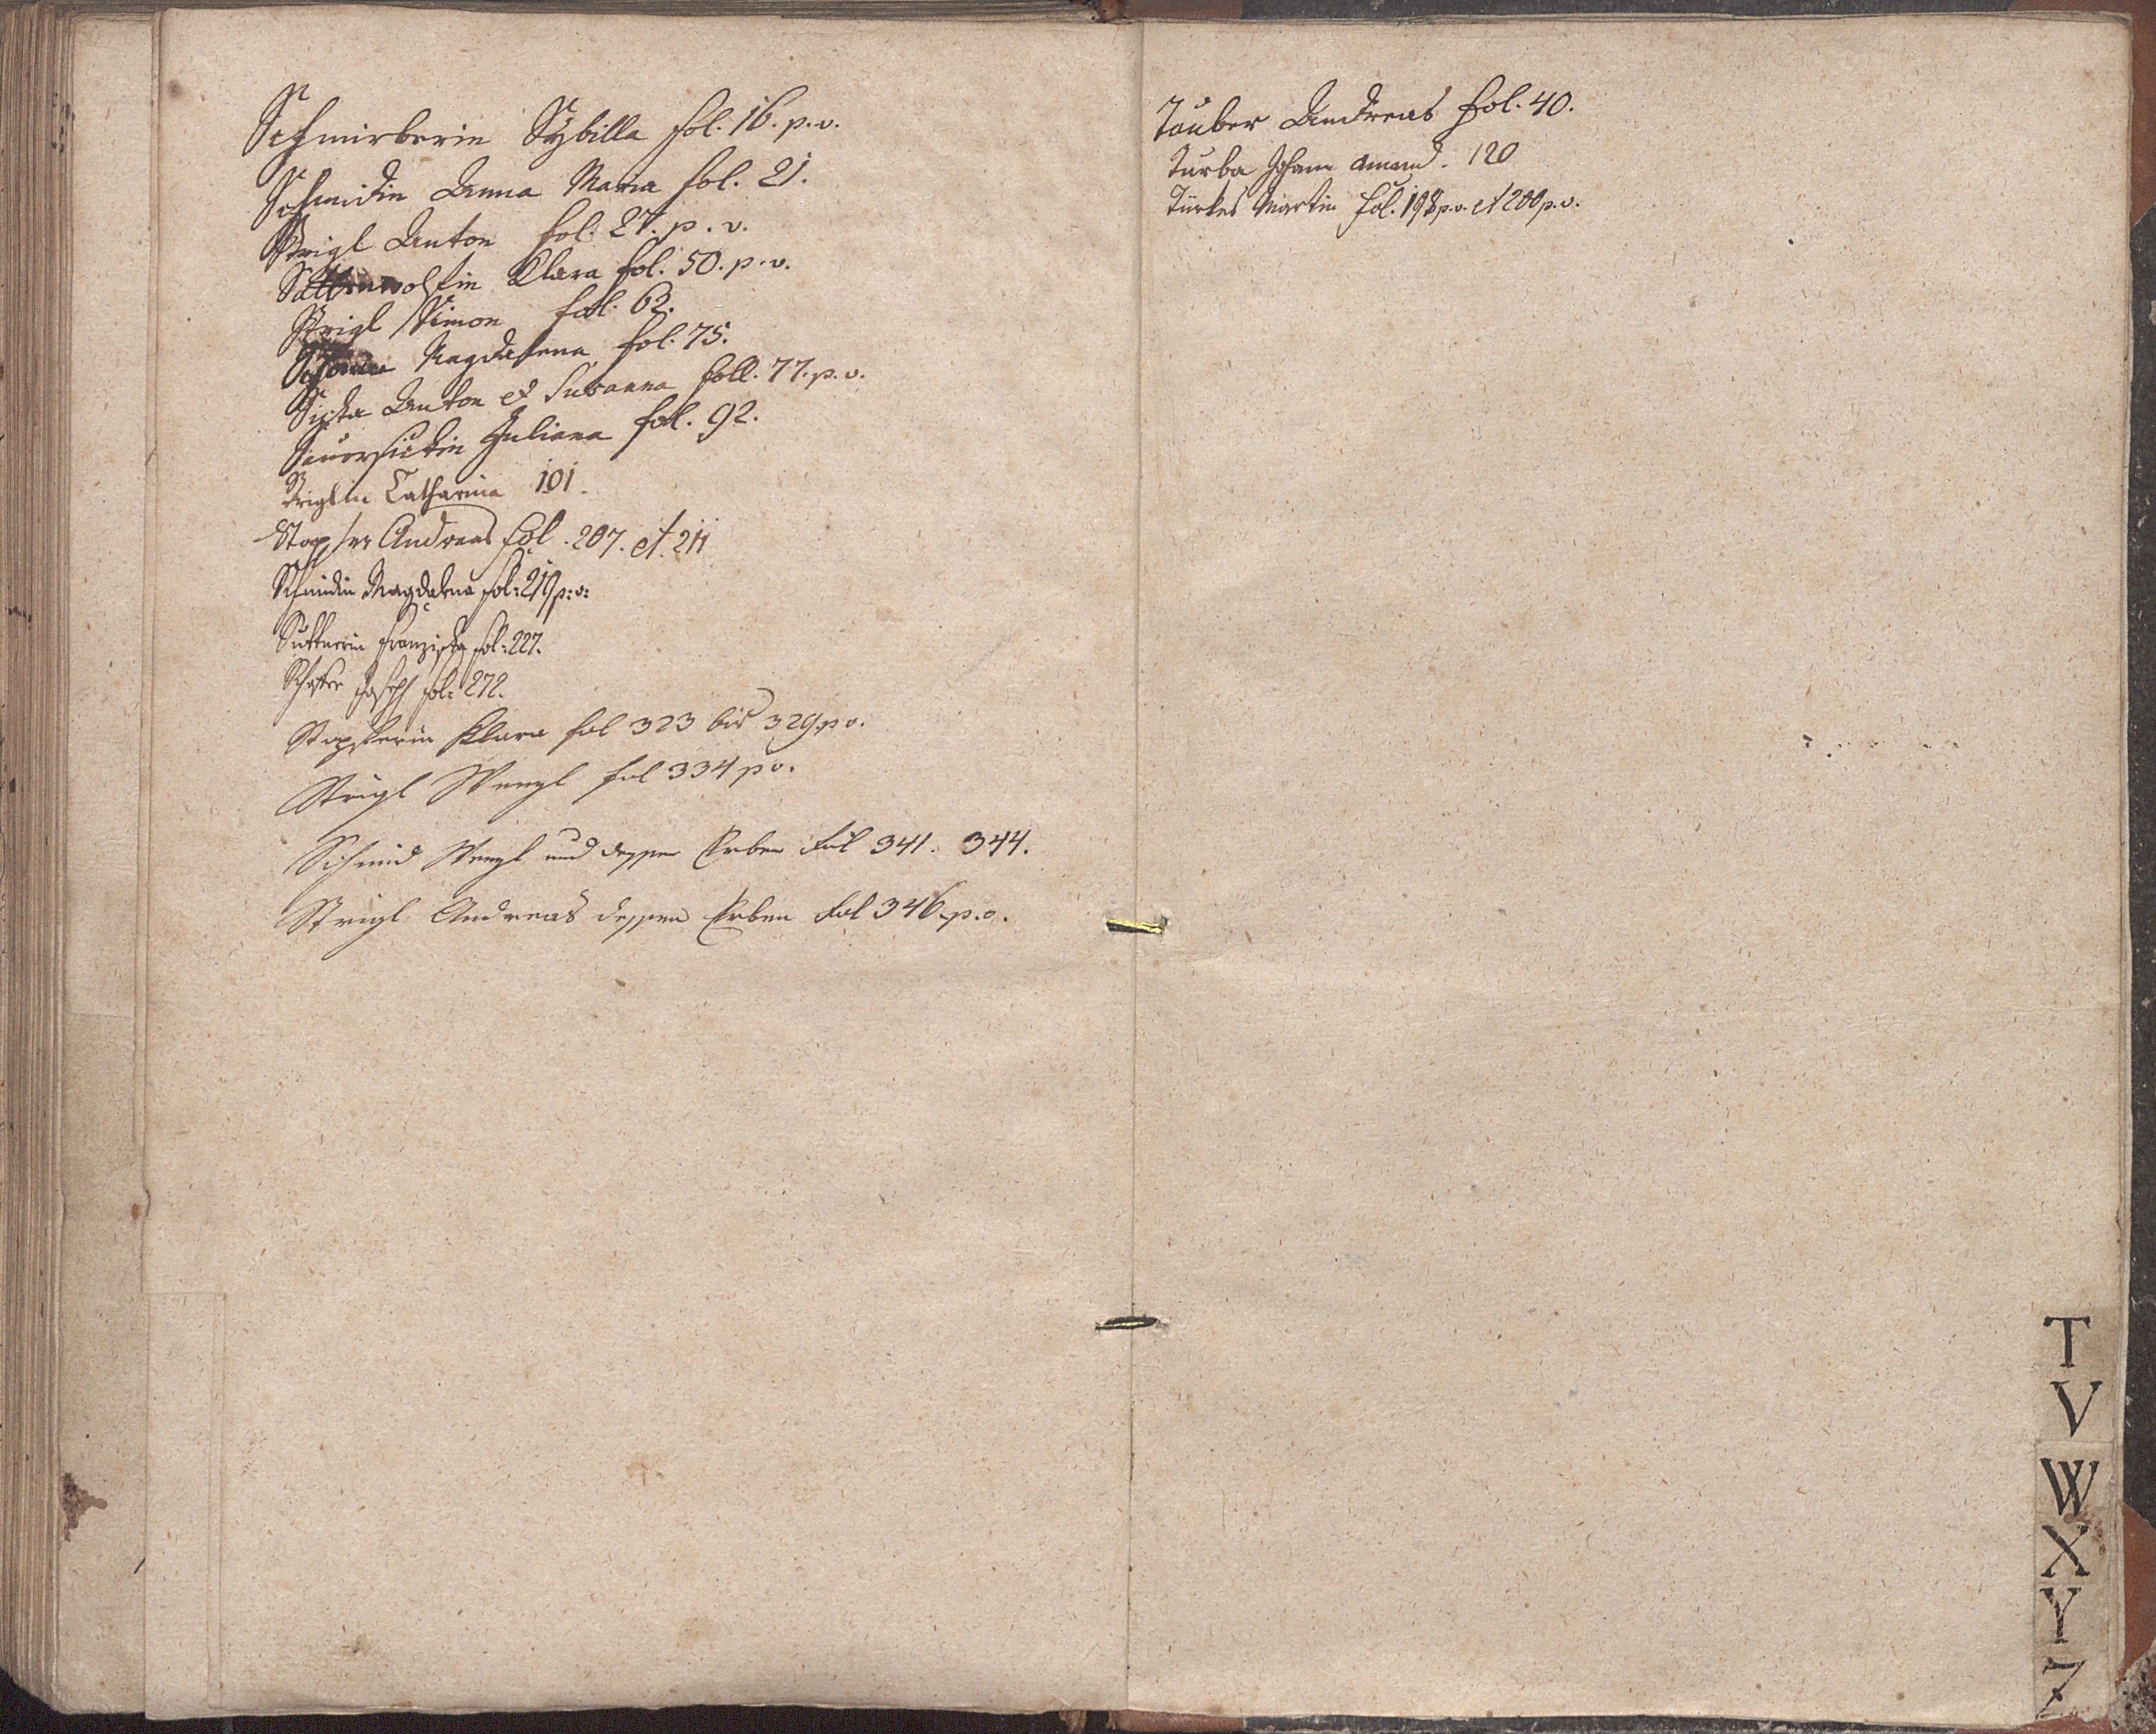 Schmirberin Sybilla fol. 16. p. v.
Schmidin Anna Maria fol. 21.
Strigl Anton fol. 27. p. v.
Klara fol. 50. p. v.
Strigl Simon fol. 62.
Magdalena fol. 75.
Anton et Susanna foll. 77. p. v.
Juliana fol. 92.
Striglin Catharina 101.
Stopfer Andreas fol. 207. et. 211
Schmidin Magdalena fol: 219 p: v:
Sutterin Franziska fol: 227.
Schafer Joseph fol: 272.
Stopferin Klara fol 323 bis 329 p v.
Strigl Wenzl fol 334 p v.
Schmid Wenzl und dessen Erben Fol 341. 344.
Strigl Andreas dessen Erben Fol 346. p. v.
Tauber Andreas fol. 40.
Turba Johann Amand. 120
Türkes Martin fol. 198 p. v. et 200 p. v.
T
V
W
X
Y
Z